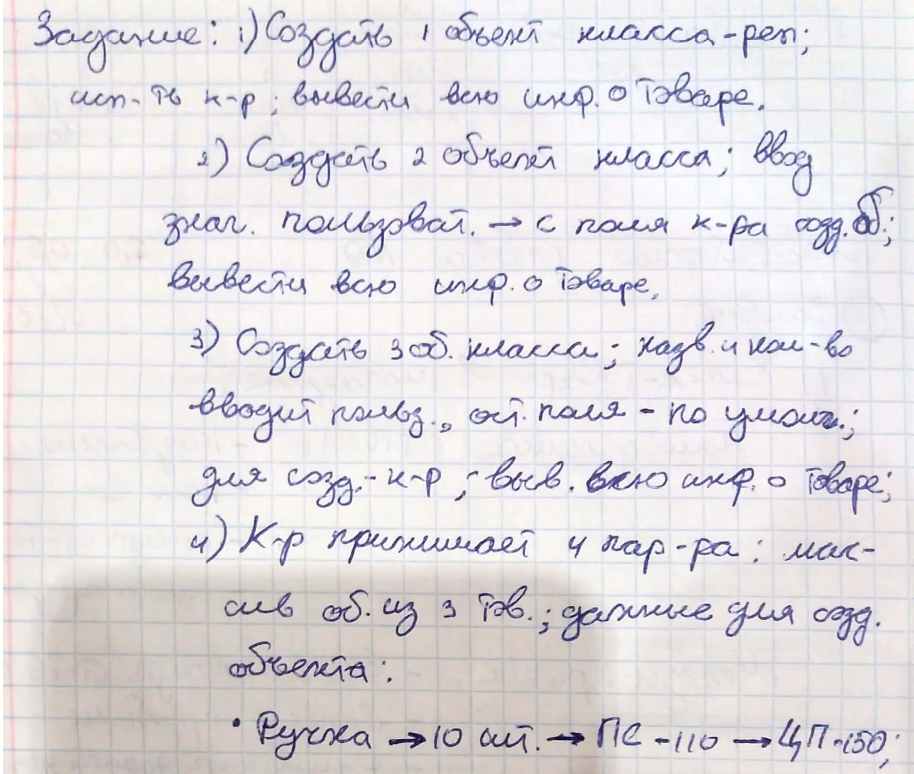 Задание: 1) Создать 1 объект класса-реп;
исп-ть к-р; вывести всю инф. о товаре.
2) Создать 2 объект класса; ввод
знач. пользоват. → с поля к-ра созд. об;
вывести всю инф. о товаре.
3) Создать 3 об. класса; назв. и кол-во
вводит польз., ост. поля - по умолч.;
для созд. - к-р; выв. всю инф. о товаре;
4) К-р принимает 4 пар-ра: мас-
сив об. из 3 тов.; данные для созд.
объекта:
• Ручка → 10 шт. → ПС - 110 → ЦП - 150;